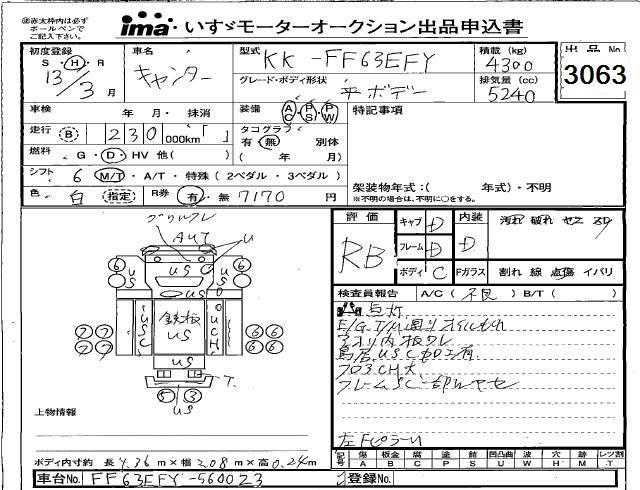 ㊟赤太枠内は必ず
ボールペンで
ご記入下さい。
ima いすゞモーターオークション出品申込書
初度登録
S・H・R
13/3月
車名
キャンター
型式
KK-FF63EFY
積載(kg)
4300
グレード・ボディ形状
平ボデー
排気量(cc)
5240
出品No
3063
車検 年・月・抹消
装備 AC PS PW
特記事項
走行 B 230000km「 」
タコグラフ
有・無 別体
( 年 月)
燃料 G・D・HV 他( )
シフト 6 M/T・A/T・特殊(2ペダル・3ペダル)
架装物年式:( 年式)・不明
※不明の場合は、不明に○をする。
色 白 指定 R券 有・無 7170円
評価 RB
キャブ D
フレーム D
ボディ C
内装 D
Fガラス
汚れ 破れ
割れ 線 点傷 イバリ
検査員報告 A/C(不良) B/T( )
点灯
E/G.T/M廻りオイルもれ
アオリ内板ワレ
鳥居USC加工有
フロアCH大
フレームSC一部
AUT
U
US
鉄板
USC
UCH
US
T
6 6
7 7
6 6
5 3
US
上物情報
ボディ内寸約 長4.36m×幅2.08m×高0.24m
記号 傷A 板金B 腐C 塗P 錆S 凹凸曲U 波W 穴H 跡M レツ割T
車台No. FF63EFY-560023
登録No.